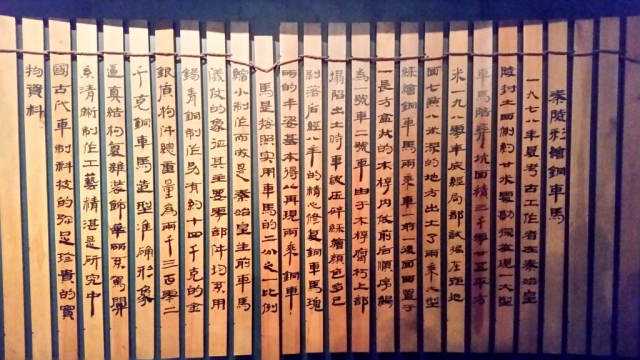 秦陵彩繪銅車馬
一九七八年夏考古工作者在秦始皇
陵封土西側約廿米處勘探發現一大型
車馬陪葬坑面積三千零廿五平方
米一九八零年底經局部試掘在距地
面七點八米深的地方出土了兩乘大型
綵繪銅車馬兩乘車一前一後面西置于
一長方盒狀的木椁內依前后順序編
為一號車二號車由于木椁腐朽上部
塌陷出土時車被压碎綵繪顏色多已
剝落后經八年的精心修复銅車馬瑰
丽的丰姿基本得以再現兩乘銅車
馬是按照實用車馬的二分之一比例
縮小制作而成是秦始皇生前車馬
儀仗的象征其主要零部件均系用
錫青銅制作另有約十四千克的金
銀質构件總重量為兩千三百零二
千克銅車馬造型准确形象
逼真結构复雜裝飾華丽系駕關
系清晰制作工藝精湛是研究中
國古代車制科技的弥足珍貴的實
物資料